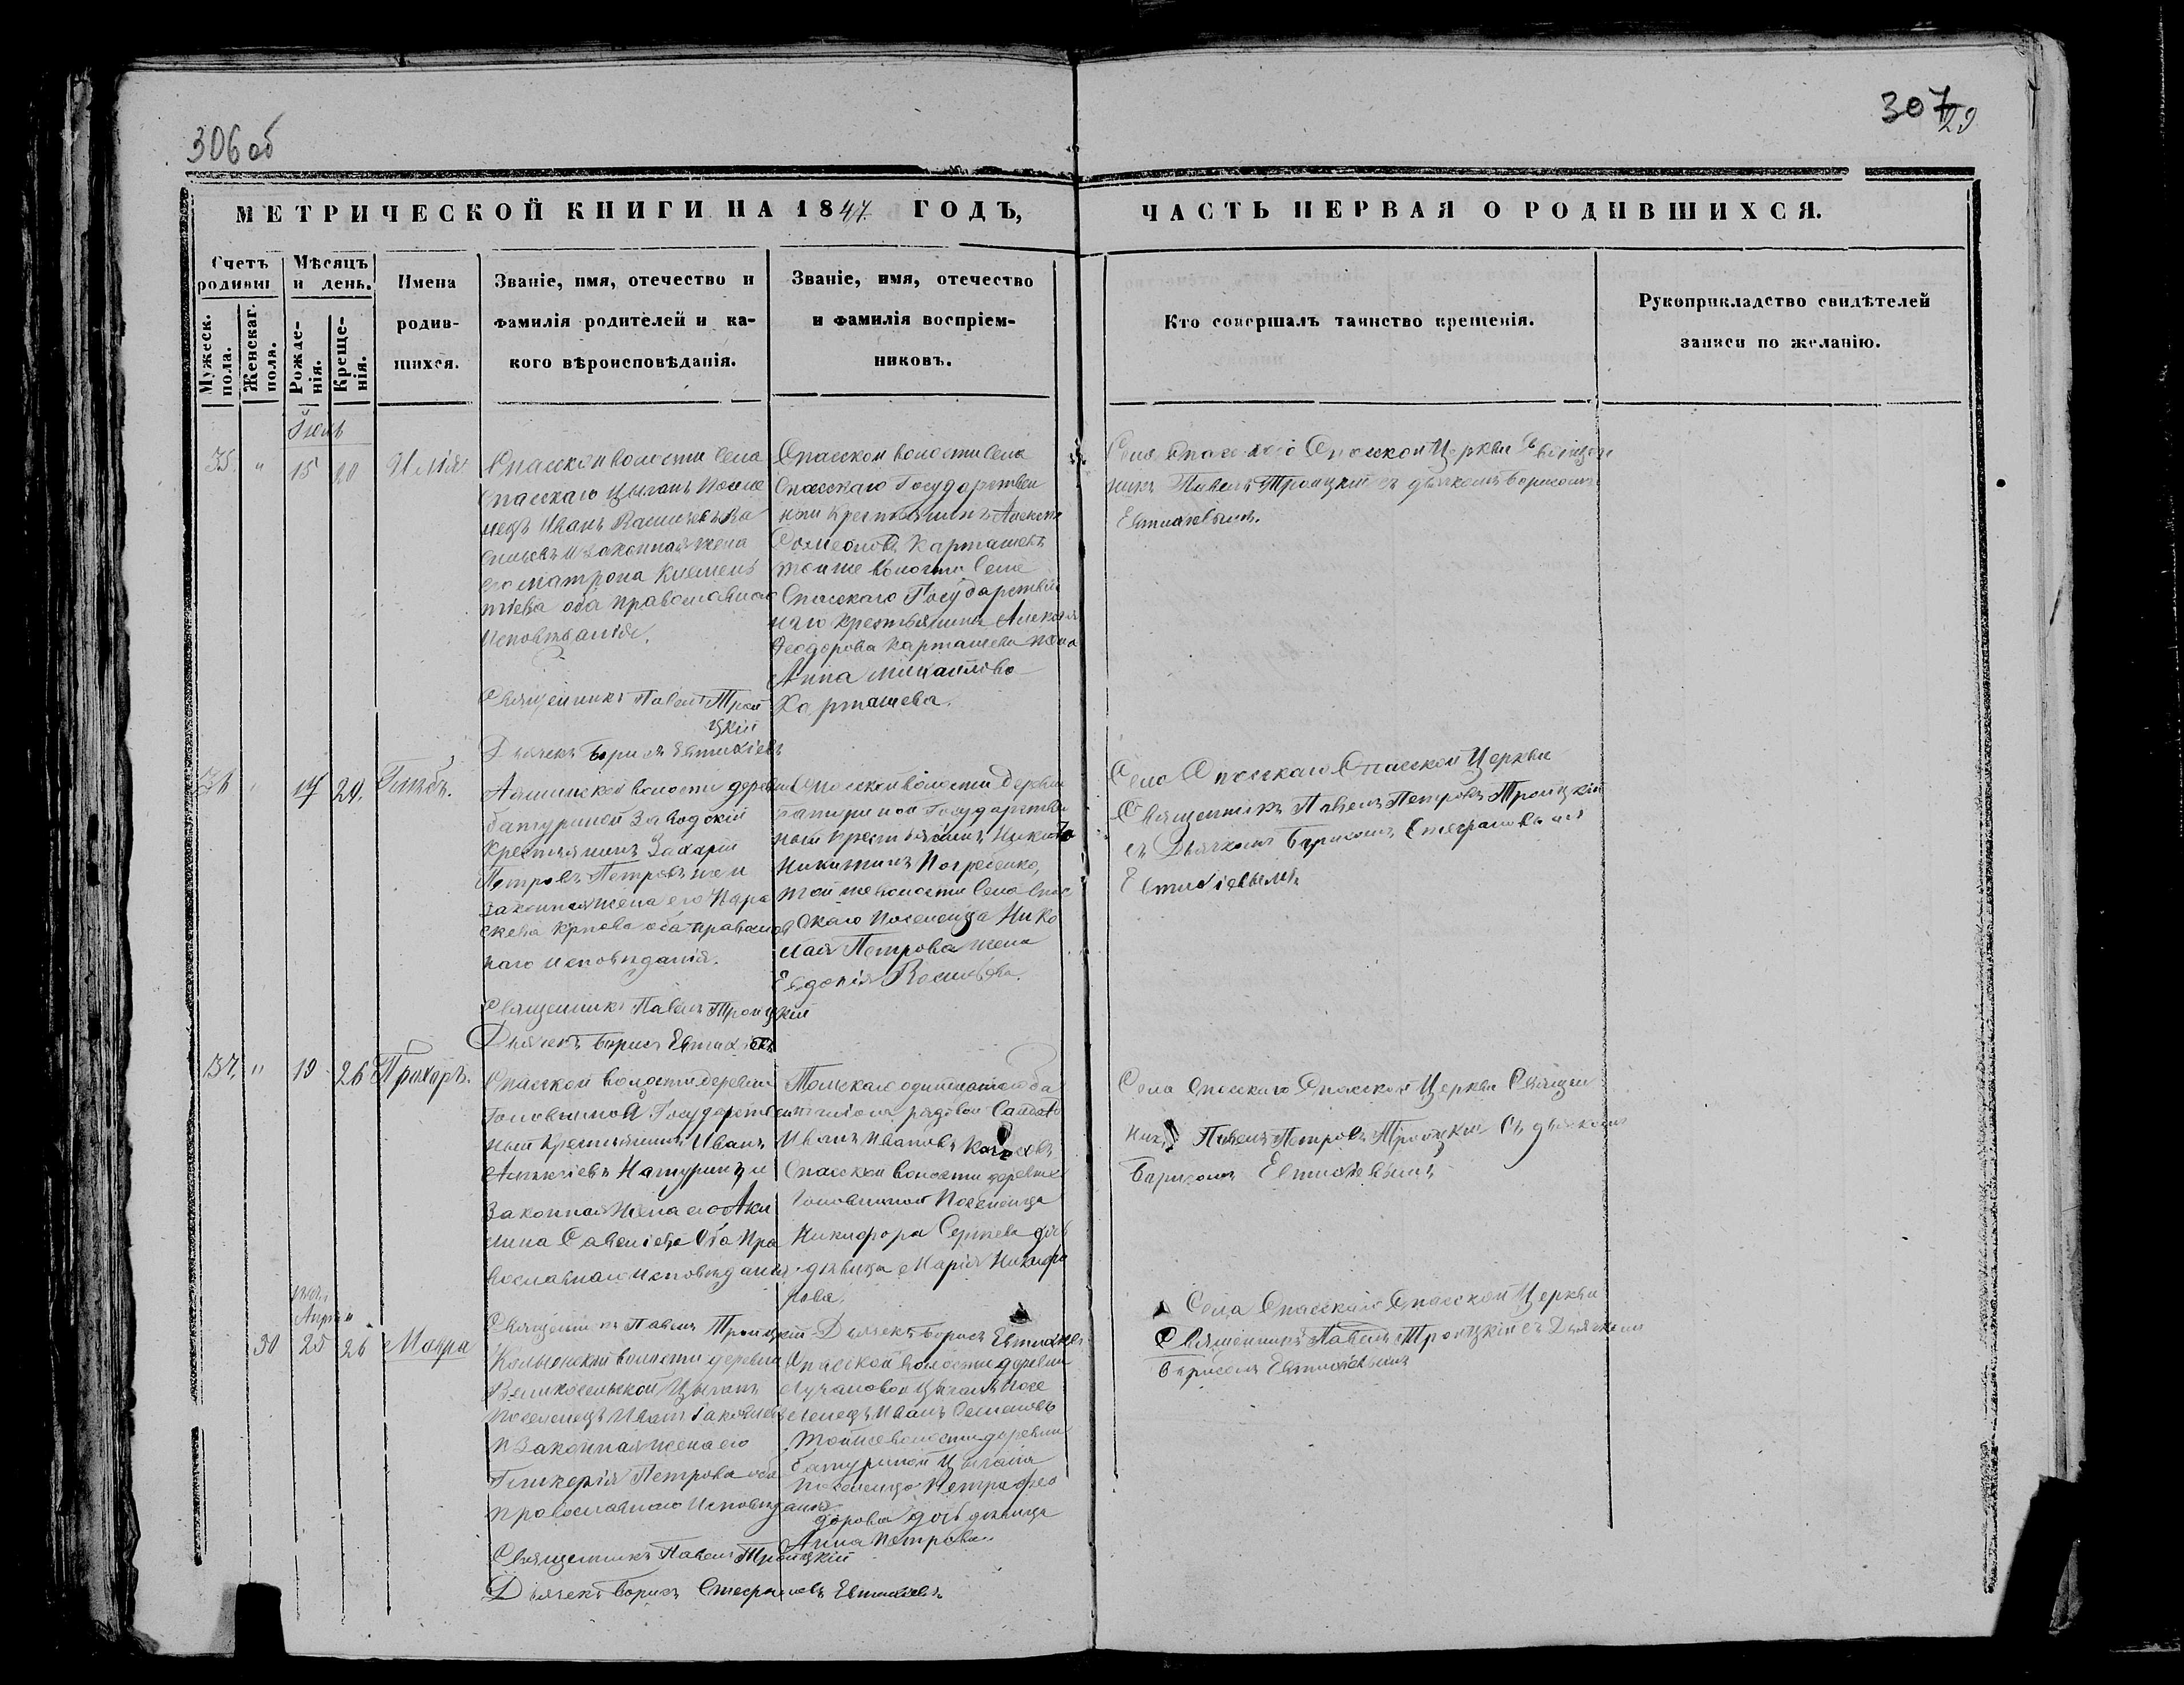 306 об
307
29
МЕТРИЧЕСКОЙ КНИГИ НА 1847 ГОДЪ,
ЧАСТЬ ПЕРВАЯ О РОДИВШИХСЯ.
Счетъ родивш
Мѣсяцъ и день.
Мужеск. пола.
Женскаг. пола.
Рожде-нія.
Креще-нія.
Имена
родив-
шихся.
Званіе, имя, отечество и
фамилія родителей и ка-
кого вѣроисповѣданія.
Званіе, имя, отечество
и фамилія воспріем-
никовъ.
Кто совершалъ таинство крещенія.
Рукоприкладство свидѣтелей
записи по желанію.
Іюль
35. " 15 20 Илія
Спасской волости села
Спасскаго Цыганъ Поселе
нецъ Иванъ Васильевъ Ва
сильевъ и законная жена
его Матрона Клемен
тіева оба православнаго
исповѣданія.
Священникъ Павелъ Трои
цкій
Дьячекъ Борисъ Евтихіевъ
Спасской волости села
Спасскаго Государствен
ный Крестьянинъ Алексѣй
Карташевъ
тойже волости Села
Спасскаго Государствен
наго крестьянина Алексѣя
Феодорова Карташева жена
Анна Михайлова
Карташева.
Села Спасскаго Спасской Церкви Священ
никъ Павелъ Троицкій съ дьячкомъ Борисомъ
Евтихіевымъ.
36 " 17 20. Глѣбъ.
волости деревни
Батуриной Заводскій
Крестьянинъ Захарій
Петровъ Петровъ же и
законная жена его Пара
скева Карпова оба православ
наго исповѣданія.
Священникъ Павелъ Троицкій
Дьячекъ Борисъ Евтихіевъ
Спасской волости деревни
Батуриной Государствен
ный Крестьянинъ Никита
Никитинъ
той же волости Села Спас
скаго Поселенца Нико
лая Петрова жена
Евдокія Васильева.
Села Спасскаго Спасской Церкви
Священникъ Павелъ Петровъ Троицкій
съ Дьячкомъ Борисомъ Стефановымъ
Евтихіевымъ
37. " 19 26
Спасской волости деревни
Головниной Государствен
ный Крестьянинъ Иванъ
Натуринъ и
Законная жена его Аки
лина Савельева Оба Пра
вославнаго исповѣданія.
Священникъ Павелъ Троицкій Дьячекъ Борисъ Евтихіевъ
Томскаго одиннатаго ба
таліона рядовой Салдатъ
Иванъ Ивановъ
Спасской волости деревни
Головниной Поселенца
Никифора Сергѣева дочь
дѣвица Марія Никифо
рова.
Села Спасскаго Спасской Церкви Священ
никъ Павелъ Петровъ Троицкій съ дьячкомъ
Борисомъ Евтихіевымъ
30 25 26 Мавра
волости деревни
Великосельской Цыганъ
Поселенецъ Иванъ Яковлевъ
и Законная жена его
Гликерія Петрова оба
православнаго исповѣданія
Священникъ Павелъ Троицкій
Дьячекъ Борисъ Стефановъ Евтихіевъ
Спасской волости деревни
Лучановой Цыганъ Посе
ленецъ Иванъ Семеновъ
Тойже волости деревни
Батуриной Цыгана
поселенца Петра Фео
дорова дочь дѣвица
Анна Петрова.
Села Спасскаго Спасской Церкви
Священникъ Павелъ Троицкій съ Дьячкомъ
Борисомъ Евтихіевымъ